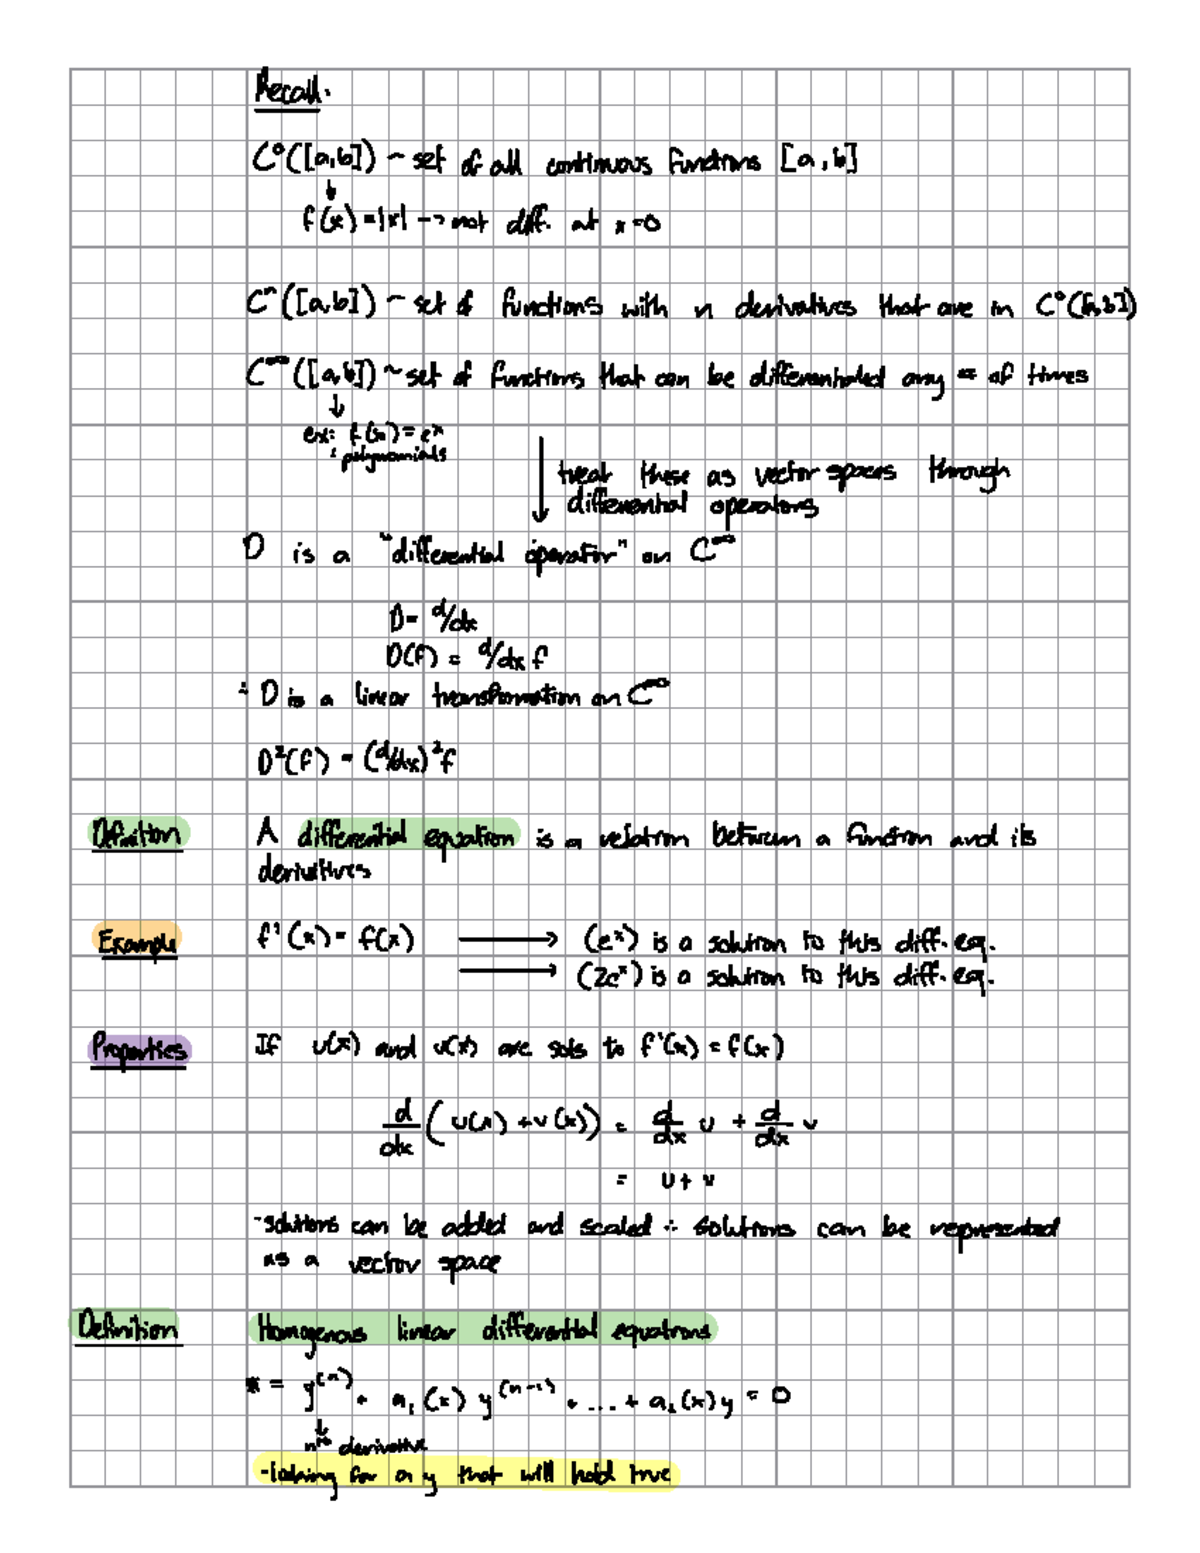 Recall.
C⁰([a,b]) ~ set of all continuous functions [a,b]
↓
f(x)=|x| -> not diff. at x=0
Cⁿ([a,b]) ~ set of functions with n derivatives that are in C⁰([a,b])
C^∞([a,b]) ~ set of functions that can be differentiated any # of times
↓
ex: f(x)=eˣ
: polynomials
treat these as vector spaces through
differential operators
D is a "differential operator" on C^∞
D= d/dx
D(f) = d/dx f
∴ D is a linear transformation on C^∞
D²(f) = (d/dx)²f
Definition A differential equation is a relation between a function and its
derivitives
Example f'(x)= f(x) ⟶ (eˣ) is a solution to this diff. eq.
⟶ (2eˣ) is a solution to this diff. eq.
Properties If u(x) and v(x) are sols to f'(x)=f(x)
d/dx (u(x)+v(x)) = d/dx u + d/dx v
= u+v
-solutions can be added and scaled ∴ solutions can be represented
as a vector space
Definition Homogenous linear differential equations
* = y⁽ⁿ⁾ + a₁(x) y⁽ⁿ⁻¹⁾ + ... + a₂(x)y = 0
↓
nᵗʰ derivative
-looking for a y that will hold true